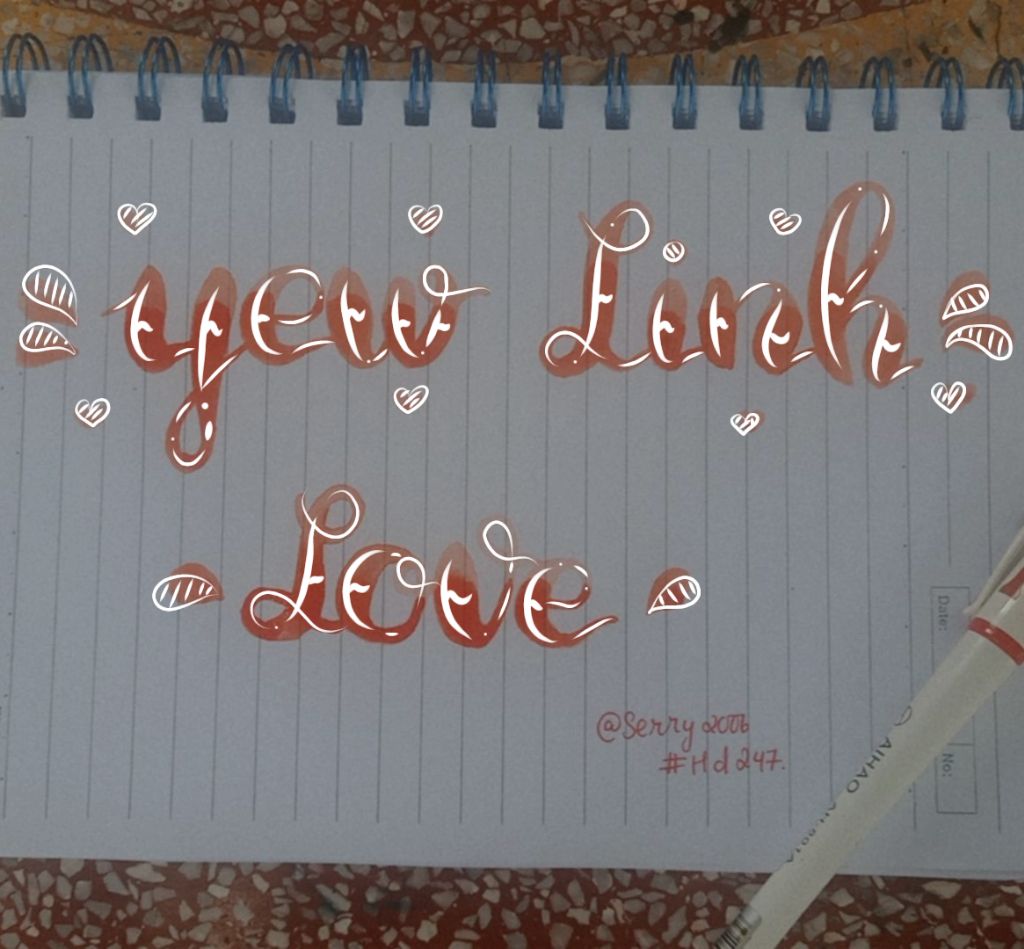 yew Linh
Love
@Serry2006
#Hd247.
Date:
No:
AIHAO